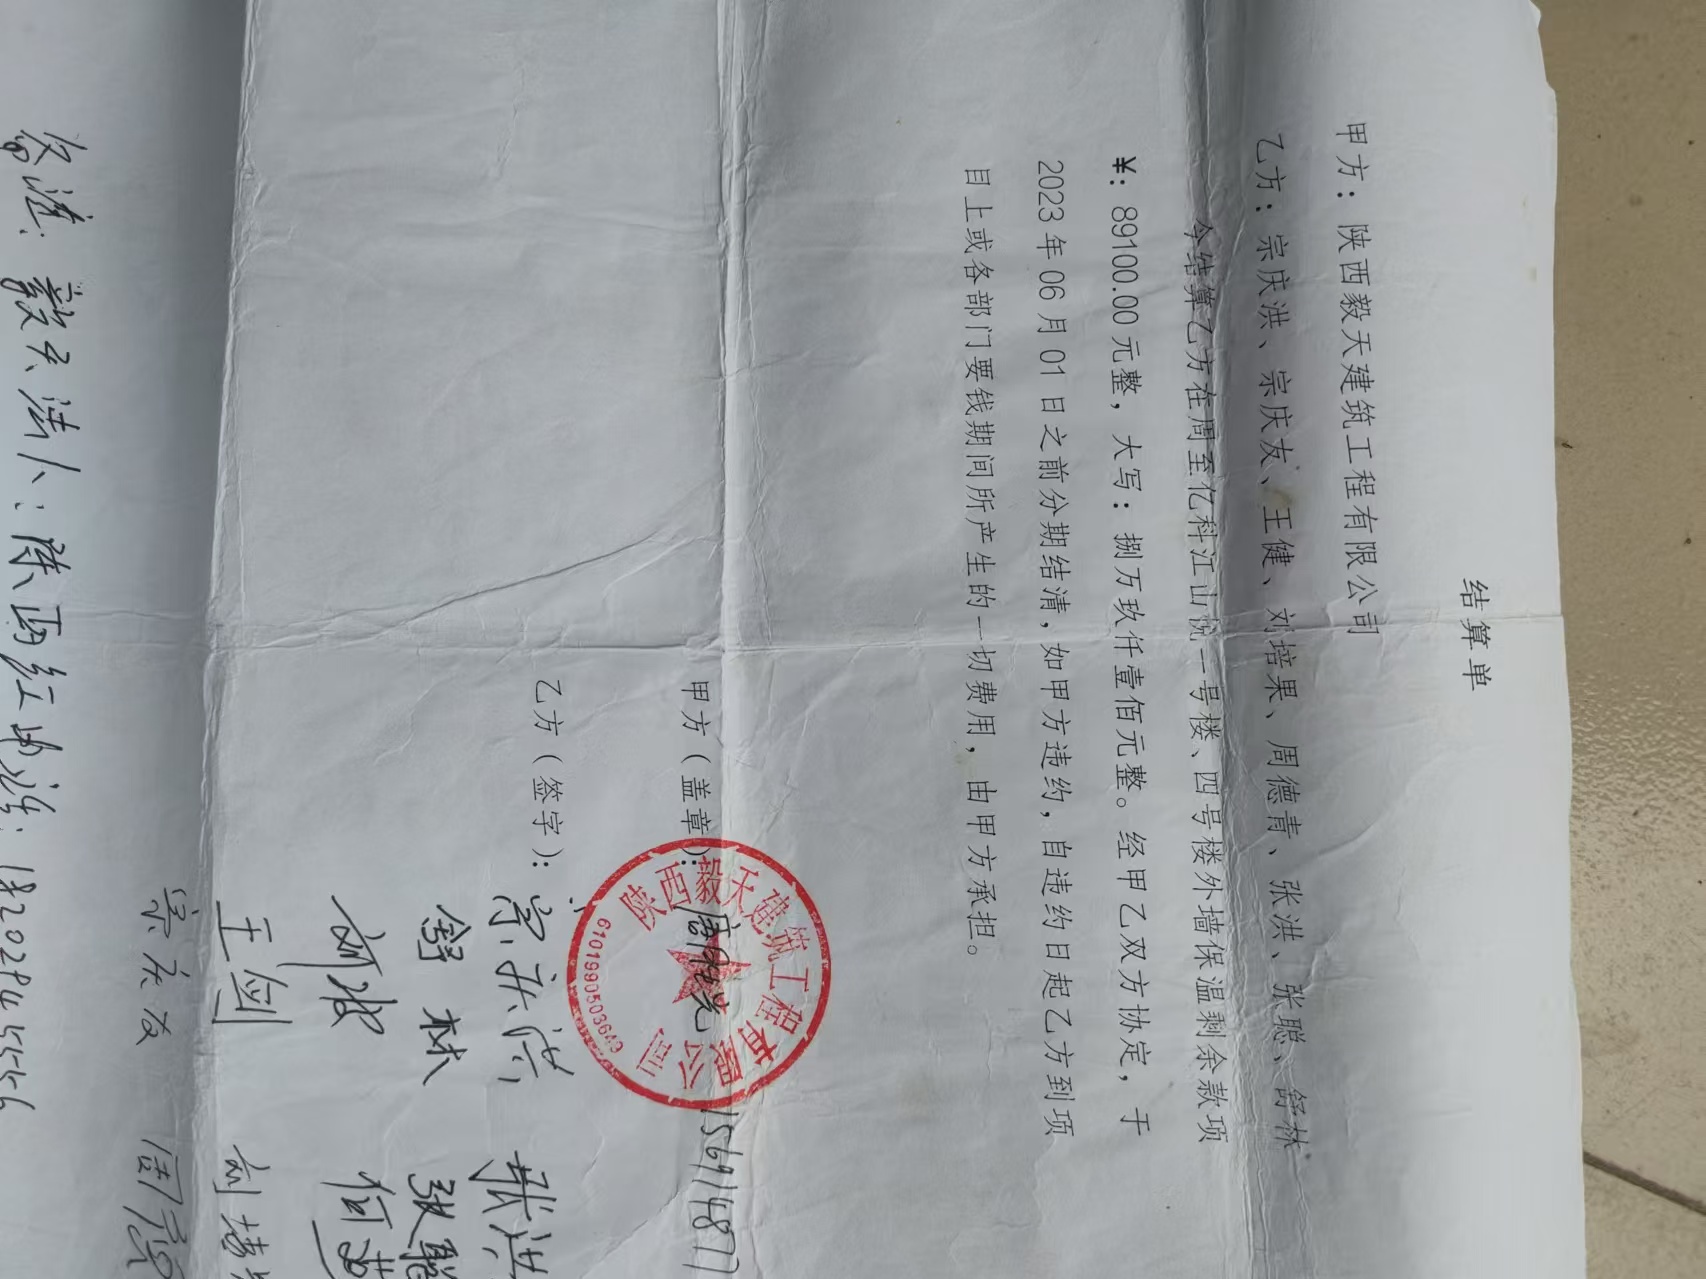 结算单
甲方：陕西毅天建筑工程有限公司
乙方：宗庆洪、宗庆友、王健、刘培果、周德青、张洪、张聪、舒林
今结算乙方在周至亿科江山悦一号楼、四号楼外墙保温剩余款项
¥：89100.00元整，大写：捌万玖仟壹佰元整。经甲乙双方协定，于
2023年06月01日之前分期结清，如甲方违约，自违约日起乙方到项
目上或各部门要钱期间所产生的一切费用，由甲方承担。
甲方（盖章）：
陕西毅天建筑工程有限公司
6101990503649
15691487
乙方（签字）：宗庆洪 张洪
舒林 张聪
刘波
王剑 刘培
宗庆友 周德
备注：毅天法人：陈